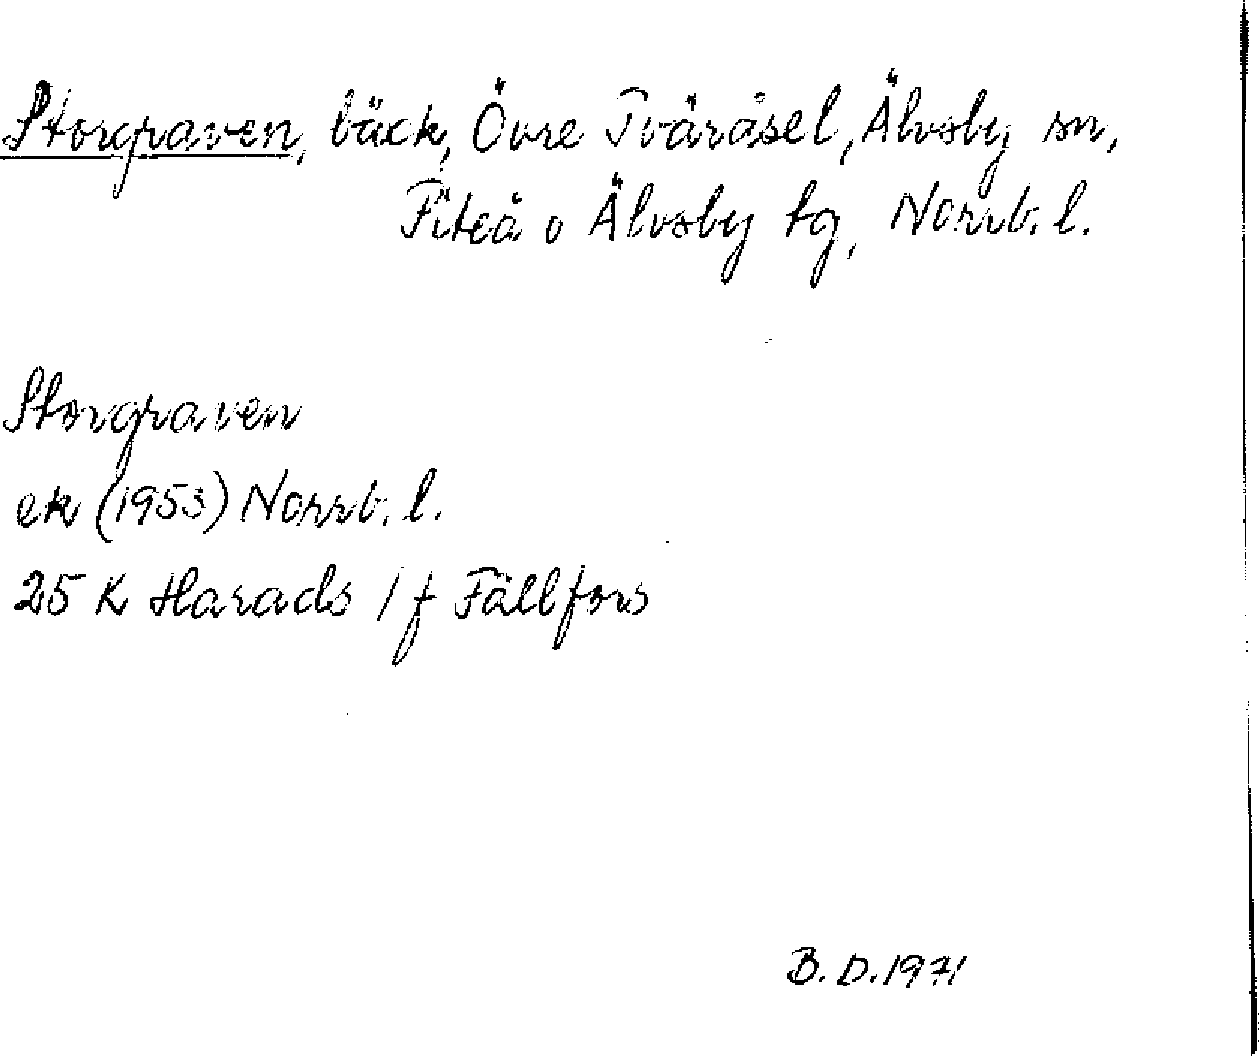 Storgraven, bäck, Övre Tväråsel, Älvsby sn,
Piteå o Älvsby tg, Norrb. l.
Storgraven
ek (1953) Norrb. l.
25 K Harads / f Fällfors
B. D. 1971